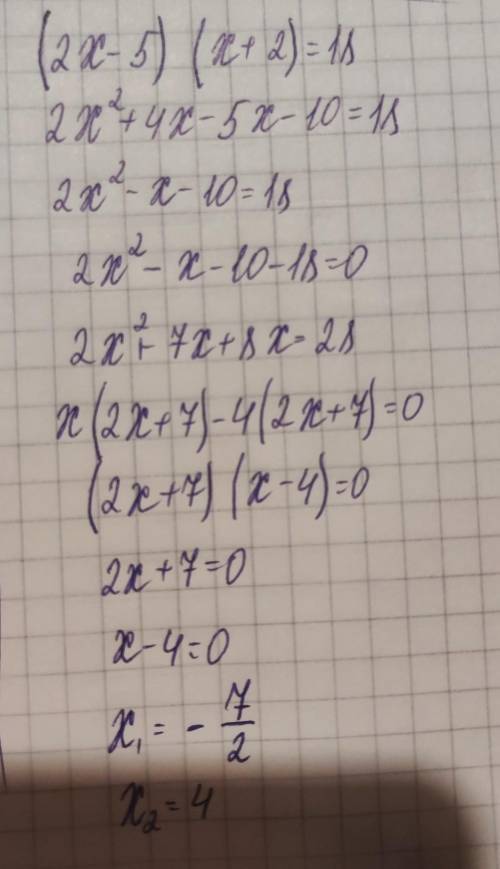 (2x-5) (x+2)=18
2x²+4x-5x-10=18
2x²-x-10=18
2x²-x-10-18=0
2x²+7x+8x-28
x(2x+7)-4(2x+7)=0
(2x+7)(x-4)=0
2x+7=0
x-4=0
x₁=-7/2
x₂=4